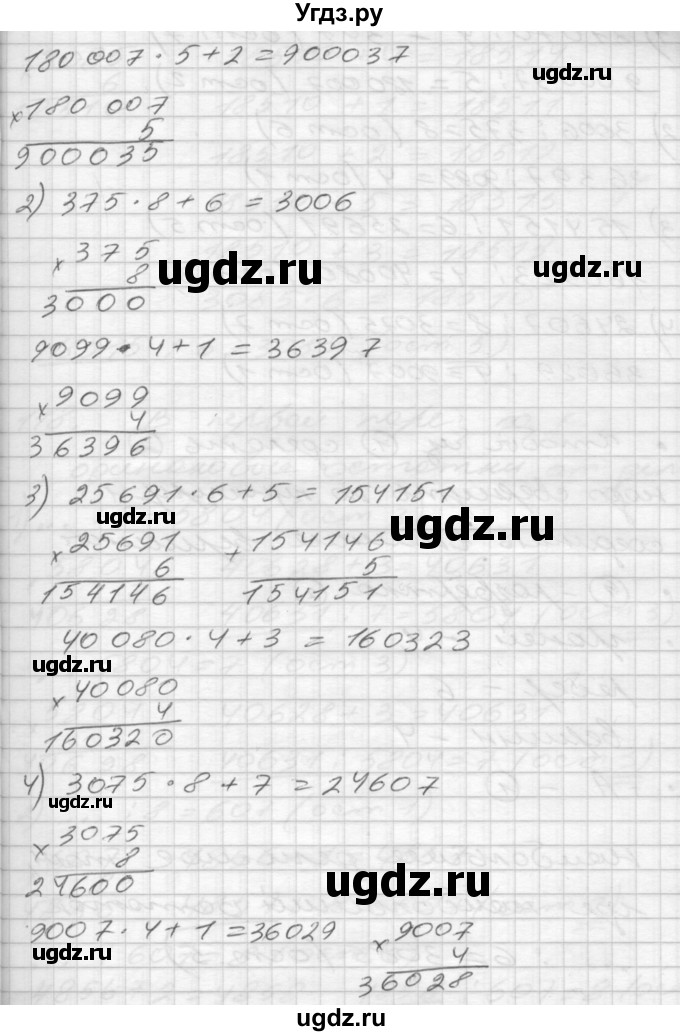 Угдз.ру
180 007 · 5 + 2 = 900037
ugdz.ru
× 180 007
5
900035
2) 375 · 8 + 6 = 3006
× 375
8
3000
ugdz.ru
ugdz.ru
9099 · 4 + 1 = 36397
× 9099
4
36396
3) 25691 · 6 + 5 = 154151
ugdz.ru
ugdz.ru
× 25691
6
154146
+ 154146
5
154151
40 080 · 4 + 3 = 160323
ugdz.ru
× 40080
4
160320
4) 3075 · 8 + 7 = 24607
ugdz.ru
× 3075
8
24600
ugdz.ru
9007 · 4 + 1 = 36029
× 9007
4
36028
ugdz.ru
ugdz.ru
ugdz.ru